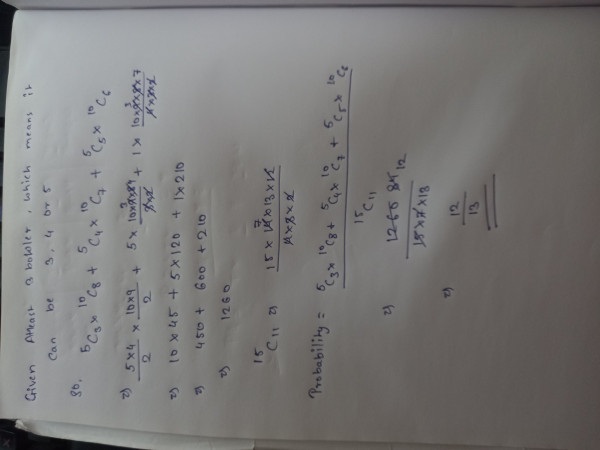 Given Atleast 3 bowler, which means it
can be 3, 4 or 5
so, ⁵C₃ × ¹⁰C₈ + ⁵C₄ × ¹⁰C₇ + ⁵C₅ × ¹⁰C₆
⇒ 5×4/2 × 10×9/2 + 5 × 10×9×8/3×2 + 1 × 10×9×8×7/4×3×2
⇒ 10 × 45 + 5 × 120 + 1 × 210
⇒ 450 + 600 + 210
⇒ 1260
¹⁵C₁₁ ⇒ 15 × 14 × 13 × 12 / 4 × 3 × 2
Probability = ⁵C₃ × ¹⁰C₈ + ⁵C₄ × ¹⁰C₇ + ⁵C₅ × ¹⁰C₆ / ¹⁵C₁₁
⇒ 1260 84 12 / 15 × 7 × 13
⇒ 12/13